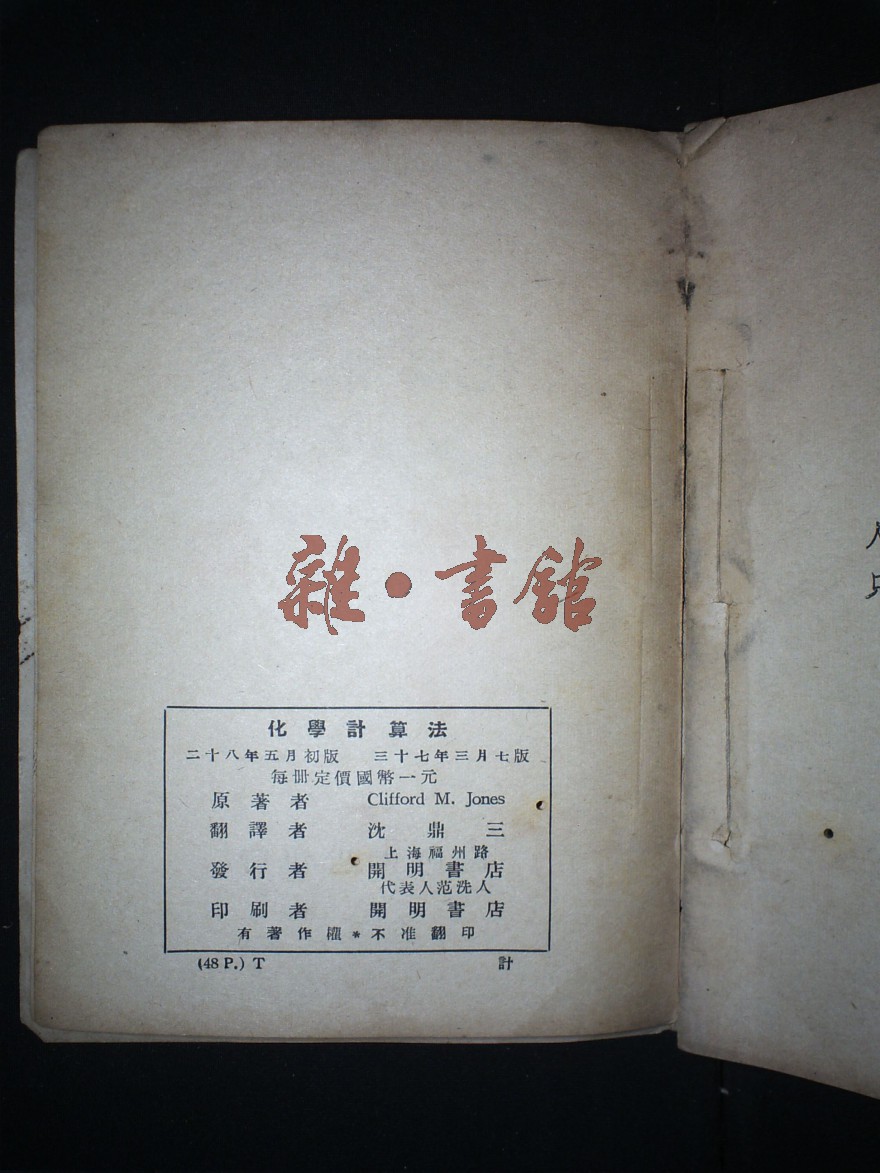 雜•書館
化學計算法
二十八年五月初版　三十七年三月七版
每册定價國幣一元
原著者　Clifford M. Jones
翻譯者　沈鼎三
上海福州路
發行者　開明書店
代表人范洗人
印刷者　開明書店
有著作權*不准翻印
(48 P.) T　計